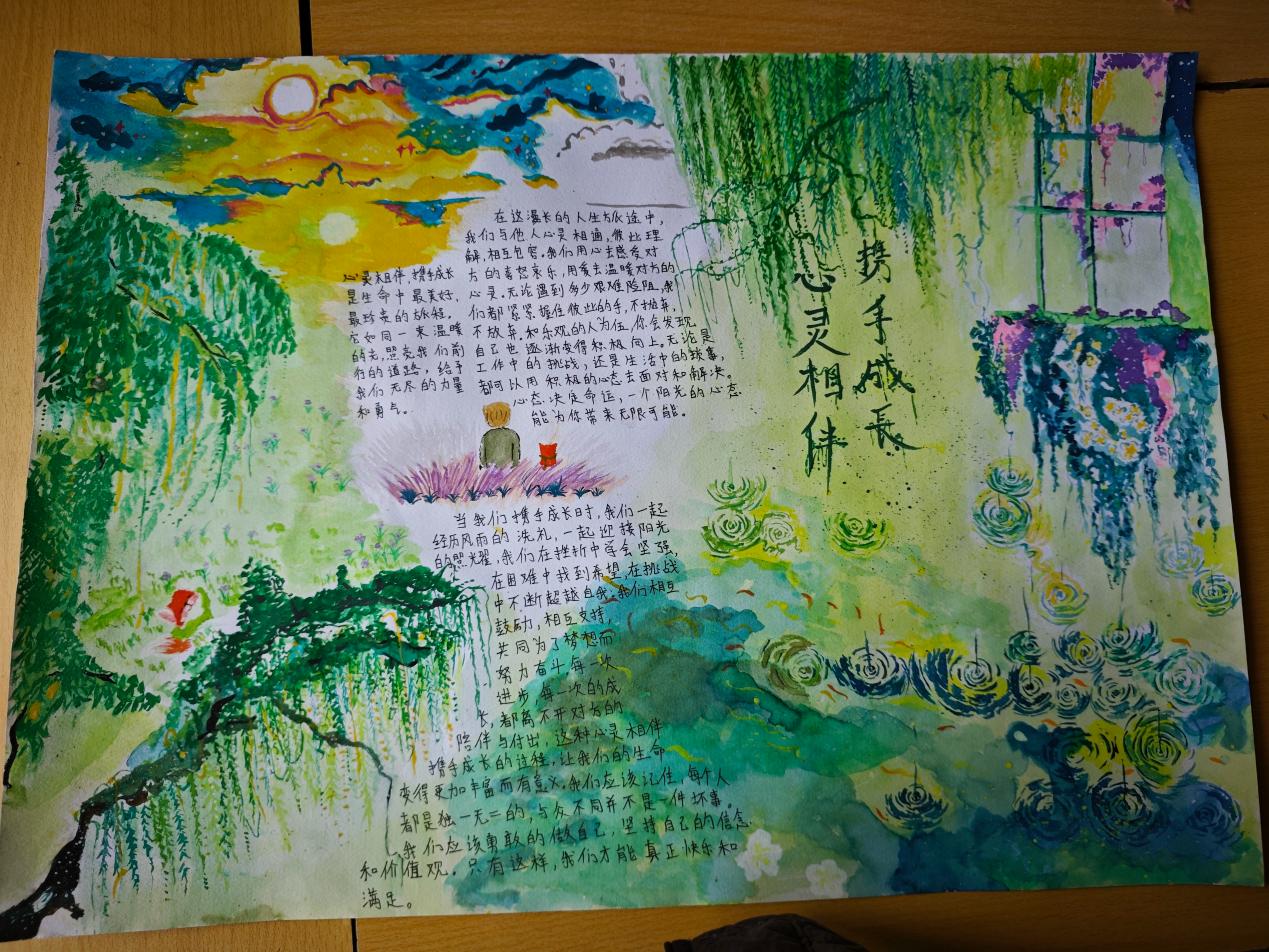 携手成長
心灵相伴
心灵相伴,携手成长
是生命中最美好,
最珍贵的旅程。
它如同一束温暖
的光,照亮我们前
行的道路,给予
我们无尽的力量
和勇气。
在这漫长的人生旅途中,
我们与他人心灵相通,彼此理
解,相互包容。我们用心去感受对
方的喜怒哀乐,用爱去温暖对方的
心灵。无论遇到多少艰难险阻,我
们都紧紧握住彼此的手,不抛弃,
不放弃。和乐观的人为伍,你会发现
自己也逐渐变得积极向上。无论是
工作中的挑战,还是生活中的琐事,
都可以用积极的心态去面对和解决。
心态决定命运,一个阳光的心态
能为你带来无限可能。
当我们携手成长时,我们一起
经历风雨的洗礼,一起迎接阳光
的照耀,我们在挫折中学会坚强,
在困难中找到希望,在挑战
中不断超越自我;我们相互
鼓励,相互支持,
共同为了梦想而
努力奋斗每一次
进步,每一次的成
长,都离不开对方的
陪伴与付出,这种心灵相伴
携手成长的过程,让我们的生命
变得更加丰富而有意义。我们应该记住,每个人
都是独一无二的,与众不同并不是一件坏事。
我们应该勇敢的做自己,坚持自己的信念
和价值观。只有这样,我们才能真正快乐和
满足。